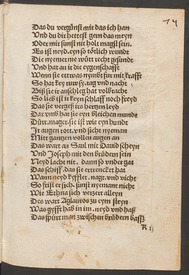 Das du vergünst mir das ich han
Und du die hettest gern das meyn
Oder mir sunst nit holt magst sein
Es ist neyd, eyn so tötlich wundt
Die nyemer me würt recht gesundt
Und hat an ir die eygenschafft
Wann sie etwas nymbt für mit krafft
So hat keyn ruw sy, tag und nacht
Biß sie ir anschleg hat volbracht
So lieb ist ir keyn schlaff noch freyd
Das sie vergeß irs hertzen leyd
Dar umb hat sie eyn bleichen mundt
Dürr, mager, sie ist wie eyn hundt
Ir augen rott, und sicht nyeman
Mit gantzen vollen augen an
Das wart an Saul mit David scheyn
Und Joseph mit den brüdern sein
Neyd lacht nit, dann so under gat
Das schiff, das sie ertrencket hat
Wann neyd kyfflet, nagt, und nicht
So frist er sich, sunst nyemant nicht
Wie Ethna sich verzert alleyn
Des wart Aglauros zu eym steyn
Was gyfft haß in im, neyd und haß
Das spürt man zwüschen brüdern baß